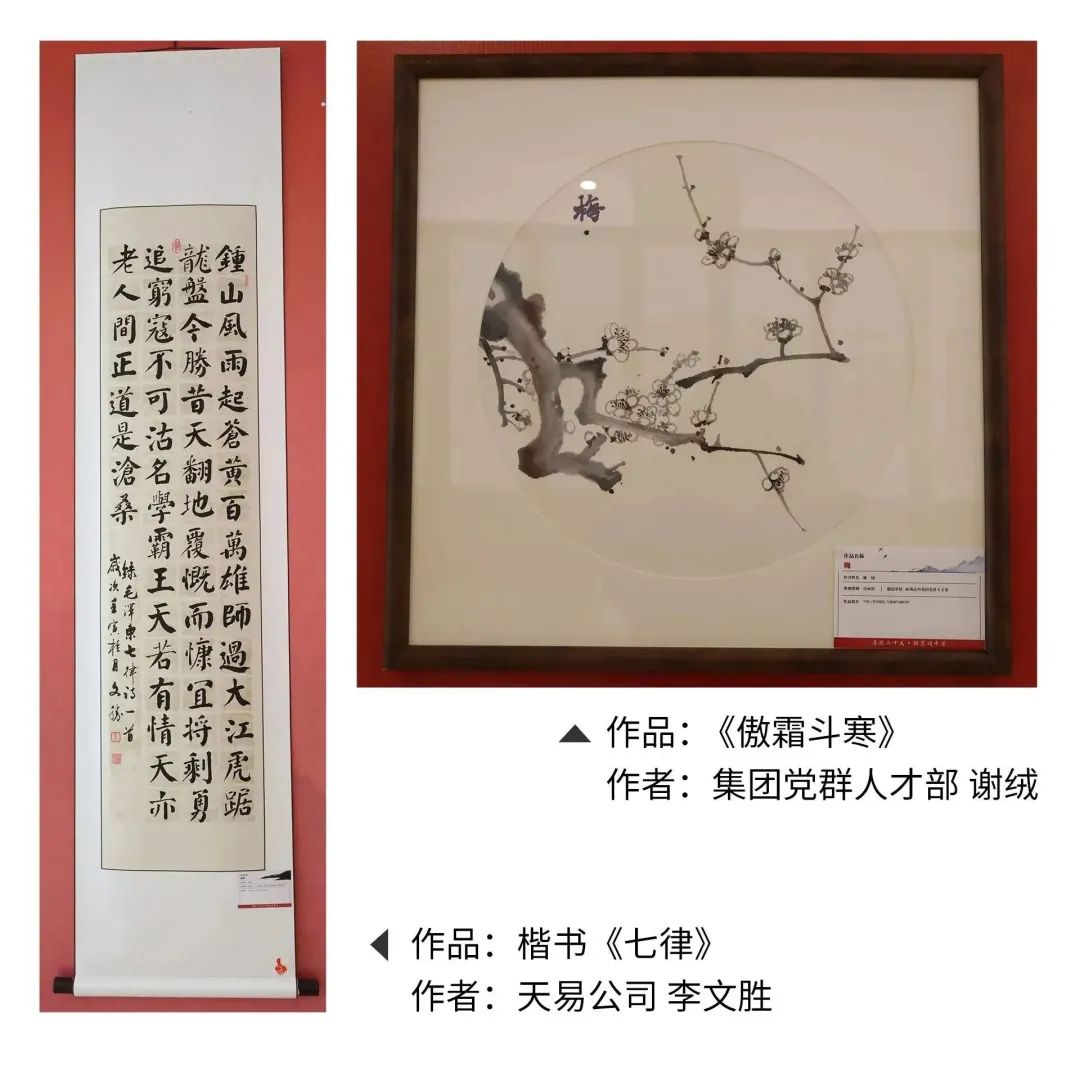 鍾山風雨起蒼黄百萬雄師過大江虎踞
龍盤今勝昔天翻地覆慨而慷冝将剩勇
追窮寇不可沽名學霸王天若有情天亦
老人間正道是滄桑
録毛澤東七律詩一首
歲次壬寅桂月文勝
梅
作品名称
梅
作者姓名 谢 绒
作品：《傲霜斗寒》
作者：集团党群人才部 谢绒
作品：楷书《七律》
作者：天易公司 李文胜